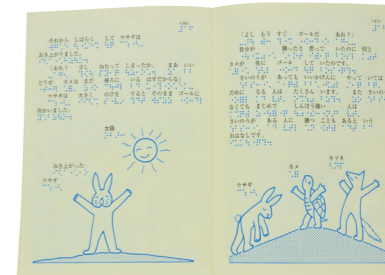 (16)
それから しばらく して ウサギは
おき上がりました。
「あお! 少し ねむって しまったか。 まあ いい
どうせ カメは まだ 後ろに いる はずだからな」
ウサギは 大きく のびを すると そのまま ゴールに
向かいました。
太陽
おき上がった
ウサギ
(17)
「よし もう すぐ ゴールだ あれ!」
自分が 勝ったと 思って いたのに 何と
カメが 先に ゴール して いたのです。
さいのうが あっても いいかげんに やって いては
だめに なる 人は たくさん います。 また さいのうが
なくても まじめで しんぼう強い 人は
さいのうが ある 人に 勝つ ことも あると いう
おはなしです。
キツネ
カメ
ウサギ